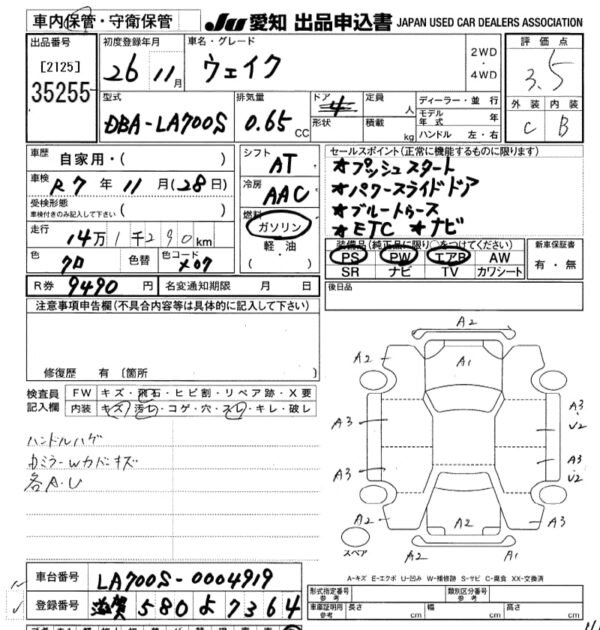 車内保管・守衛保管
JU 愛知 出品申込書 JAPAN USED CAR DEALERS ASSOCIATION
出品番号
[2125]
35255
初度登録年月
26 11月
車名・グレード
ウェイク
2WD
・
4WD
評価点
3.5
外装 内装
C B
型式
DBA-LA700S
排気量
0.65 CC
ドア 4
形状
定員 人
積載 kg
ディーラー・並行
モデル年式 年
ハンドル 左・右
車歴 自家用・( )
車検 R7年11月(28日)
受検形態
車検付きのみ記入して下さい ( )
走行 14万1千290km
色 クロ 色替 色コード X07
R券 9490円 名変通知期限 月 日
シフト AT
冷房 AAC
燃料
ガソリン
・
軽・油
セールスポイント(正常に機能するものに限ります)
★プッシュスタート
★パワースライドドア
★ブルートゥース
★ETC ★ナビ
装備品(純正品に限り○をつけてください)
PS PW エアB AW
SR ナビ TV カワシート
新車保証書
有・無
後日品
注意事項申告欄(不具合内容等は具体的に記入して下さい)
修復歴 有 〔箇所
検査員記入欄
FW キズ・飛石・ヒビ割・リペア跡・X要
内装 キズ・汚レ・コゲ・穴・スレ・キレ・破レ
ハンドルハゲ
カミラーWカドキズ
各A.U
A2
A2 A1 A2
A3 A3 U2
A3 A3 U2
A2 A2 A3
A2 A1
スペア
A-キズ E-エクボ U-凹み W-補修跡 S-サビ C-腐食 XX-交換済
車台番号 LA700S-0004919
登録番号 滋賀 580 よ 7364
形式指定番号 参考
類別区分番号 参考
車庫証明用 参考 長さ cm 幅 cm 高さ cm